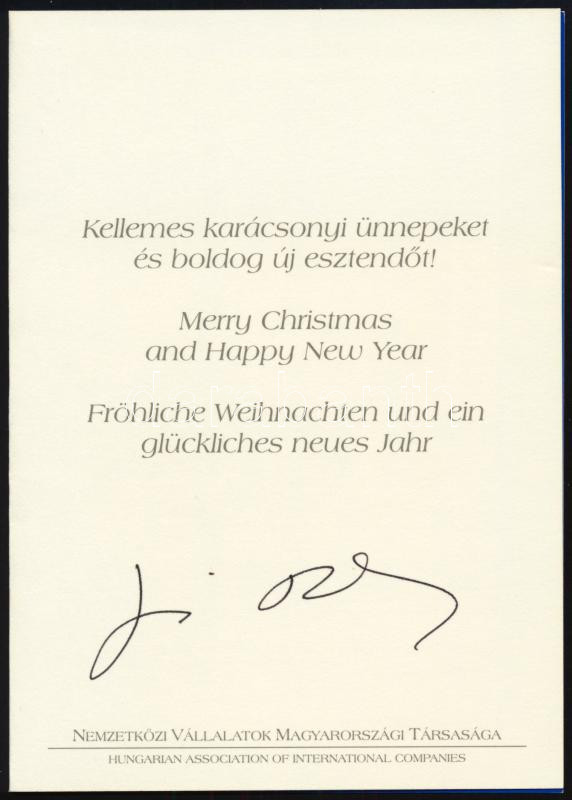 Kellemes karácsonyi ünnepeket
és boldog új esztendőt!
Merry Christmas
and Happy New Year
Fröhliche Weihnachten und ein
glückliches neues Jahr
NEMZETKÖZI VÁLLALATOK MAGYARORSZÁGI TÁRSASÁGA
HUNGARIAN ASSOCIATION OF INTERNATIONAL COMPANIES